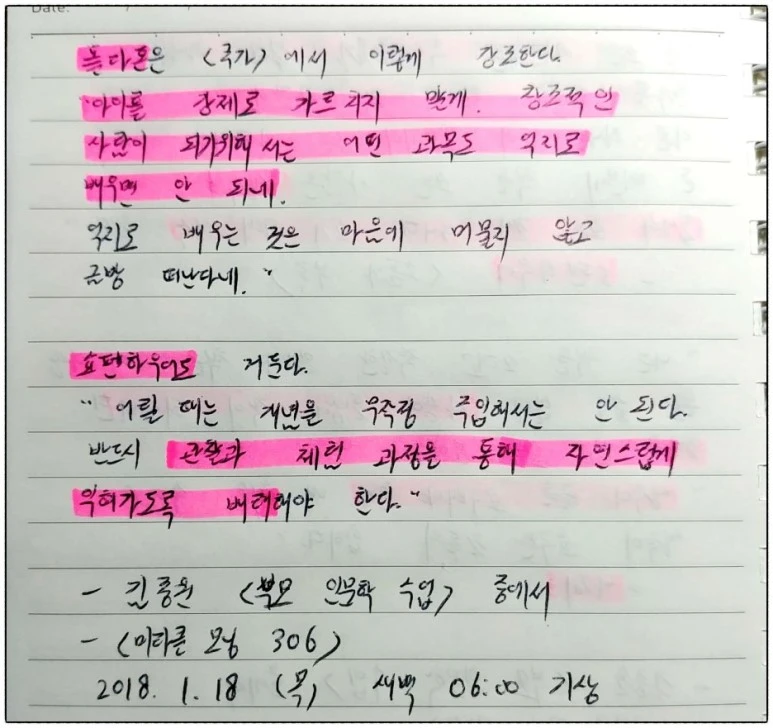 Date:
플라톤은 <국가>에서 이렇게 강조한다.
"아이를 강제로 가르치지 말게. 창조적인
사람이 되기위해서는 어떤 과목도 억지로
배우면 안 되네.
억지로 배우는 것은 마음에 머물지 않고
금방 떠난다네."
쇼펜하우어도 거든다.
"어릴 때는 개념을 무작정 주입해서는 안 된다.
반드시 관찰과 체험 과정을 통해 자연스럽게
익혀가도록 배려해야 한다."
- 김종원 <부모 인문학 수업> 중에서
- <이타른 모닝 306>
2018. 1. 18 (목) 새벽 06:00 기상